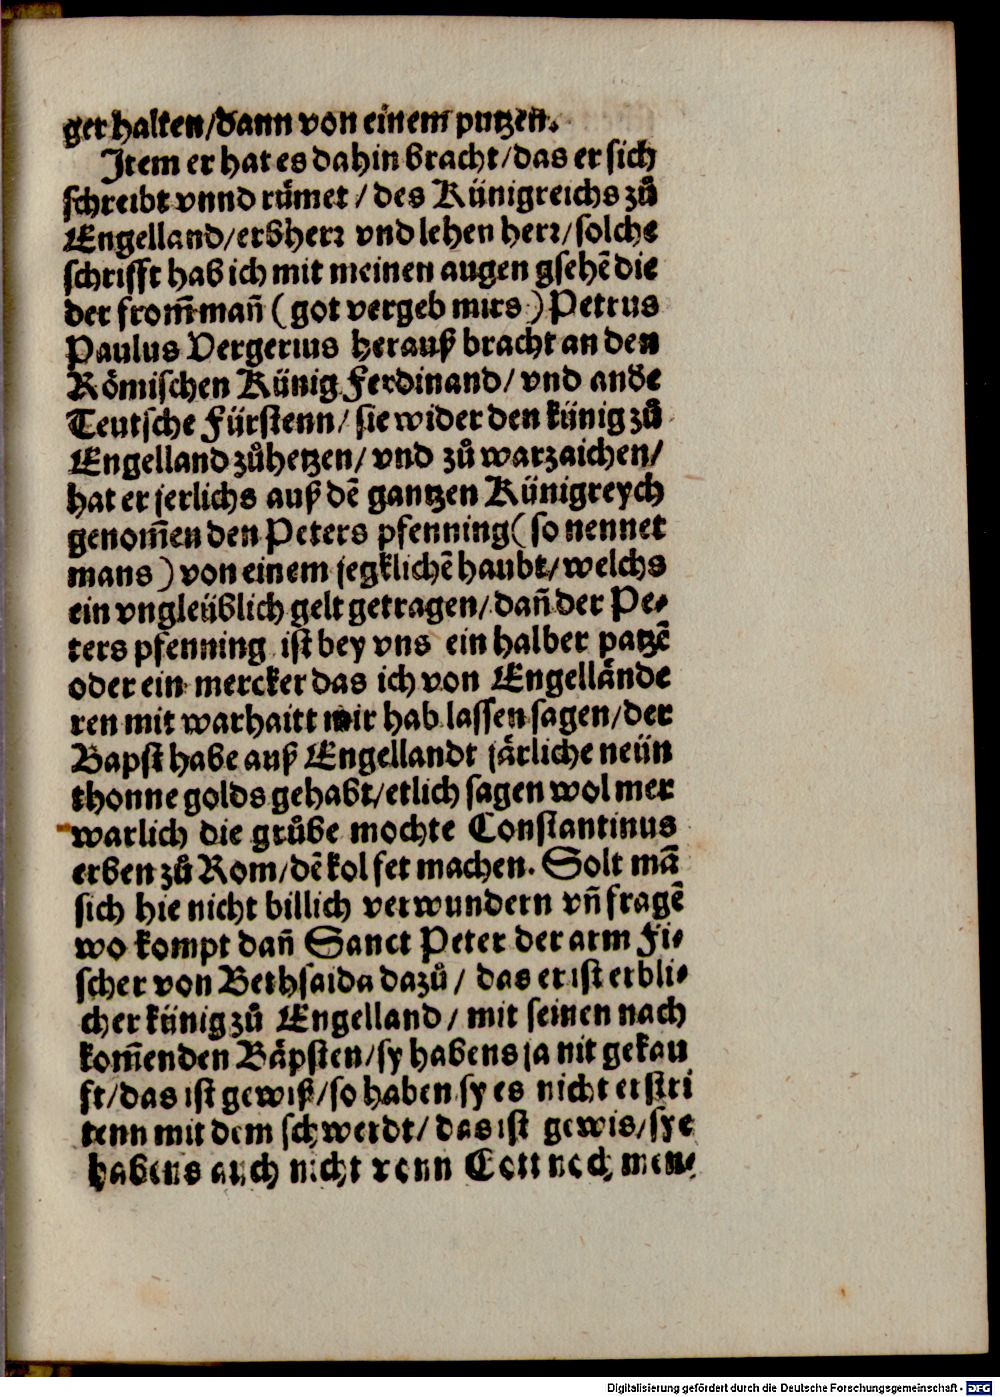 ger halten/dann von einem putzen.
Item er hat es dahin bracht/das er sich
schreibt vnnd růmet / des Künigreichs zů
Engelland/erbherꝛ vnd lehen herꝛ/solche
schrifft hab ich mit meinen augen gsehē die
der from̄ man̄ ( got vergeb mirs ) Petrus
Paulus Vergerius herauß bracht an den
Römischen Künig Ferdinand/ vnd ande
Teutsche Fürstenn/ sie wider den künig zů
Engelland zůhetzen/ vnd zů warzaichen/
hat er jerlichs auß dē gantzen Künigreych
genom̄en den Peters pfenning( so nennet
mans ) von einem jegklichē haubt/welchs
ein vngleüblich gelt getragen/dan̄ der Pe⸗
ters pfenning ist bey vns ein halber patzē
oder ein mercker das ich von Engellände
ren mit warhaitt mir hab lassen sagen/der
Bapst habe auß Engellandt järliche neün
thonne golds gehabt/etlich sagen wol mer
warlich die grůbe mochte Constantinus
erben zů Rom/dē kol fet machen. Solt mā
sich hie nicht billich verwundern vn̄ fragē
wo kompt dan̄ Sanct Peter der arm Fi⸗
scher von Bethsaida dazů / das er ist erbli⸗
cher künig zů Engelland / mit seinen nach
kom̄enden Bäpsten/sy habens ja nit gekau
ft/das ist gewiß/so haben sy es nicht erstri
tenn mit dem schwerdt/ das ist gewis/sye
habens auch nicht vonn Gott noch men⸗
Digitalisierung gefördert durch die Deutsche Forschungsgemeinschaft - DFG